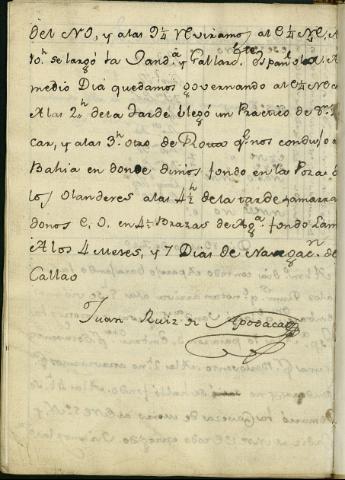 del NO, y a las 9½ Viramos al E¼NE, A
10h se largó la Vandª y Gallardte español. A
medio Dia quedamos governando al E¼NE
A las 2h de la tarde llegó un Practico de Sn Lu
car, y a las 3h otro de Rota qe nos condujo a
Bahia en donde dimos fondo en la Poza de
los Olanderes a las 4½h de la tarde y amarra
donos E, O, en 4½ Brazas de Agª fondo Lama
A los 4 Meses, y 7 Dias de Navegacn del
Callao
Juan Ruiz de Apodaca